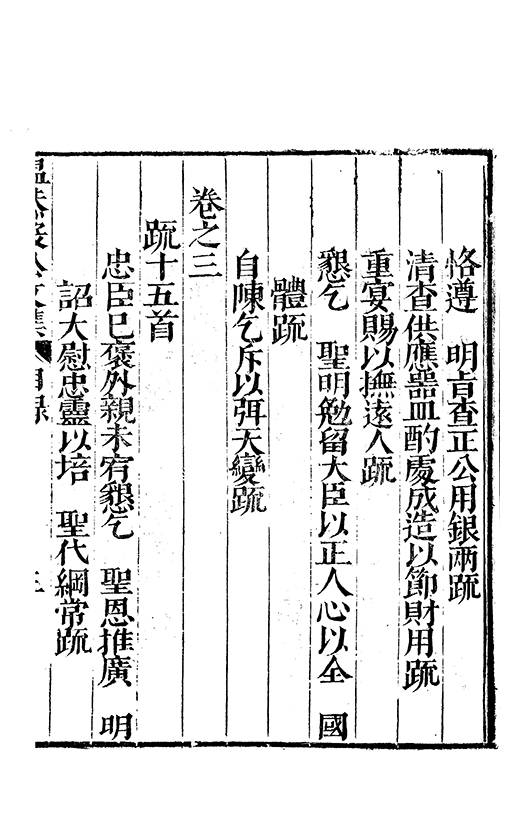 恪遵　明旨查正公用銀兩疏
清查供應器皿酌處成造以節財用疏
重宴賜以撫遠人疏
懇乞　聖明勉留大臣以正人心以全　國
體疏
自陳乞斥以弭天變疏
卷之三
疏十五首
忠臣已褒外親未宥懇乞　聖恩推廣　明
詔大慰忠靈以培　聖代綱常疏
文集　目錄　三